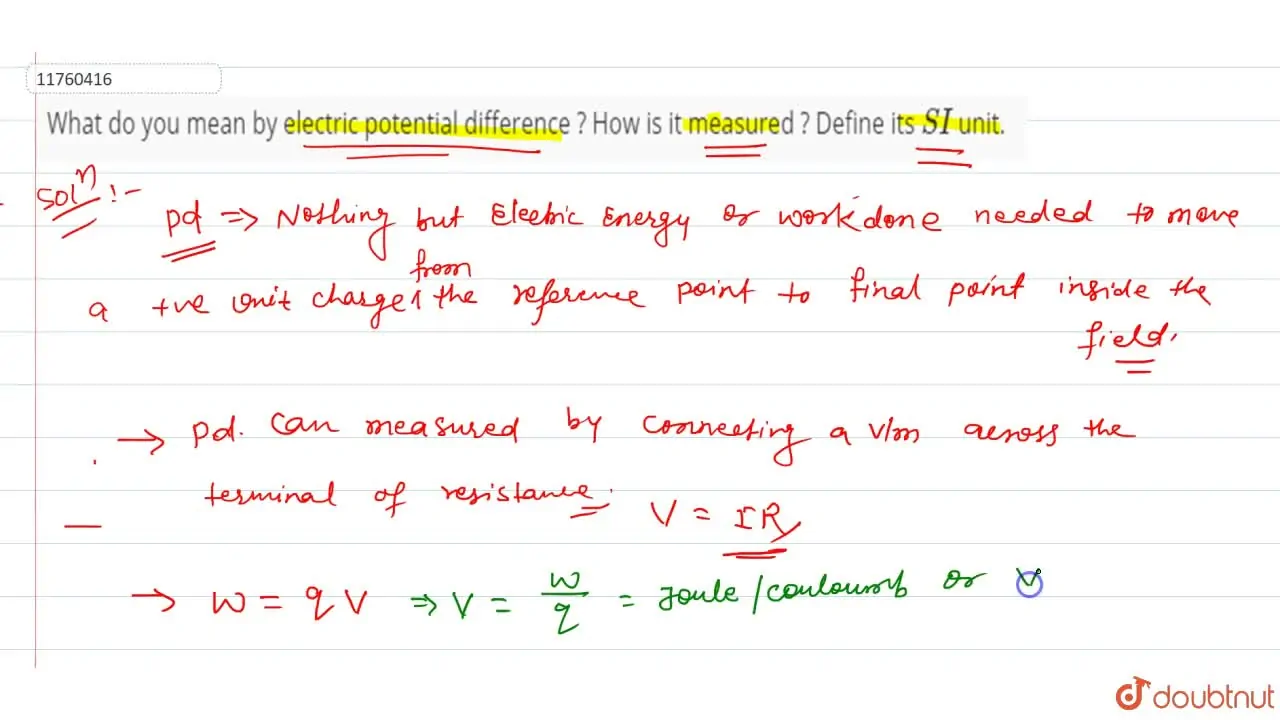 11760416
What do you mean by electric potential difference ? How is it measured ? Define its SI unit.
Solⁿ :-
Pd ⇒ Nothing but Electric Energy or work done needed to move
a +ve unit charge from the reference point to final point inside the
field.
→ Pd. can measured by connecting a v/m across the
terminal of resistance.
V = IR
→ W = qV ⇒ V = W/q = Joule/couloumb or V
doubtnut